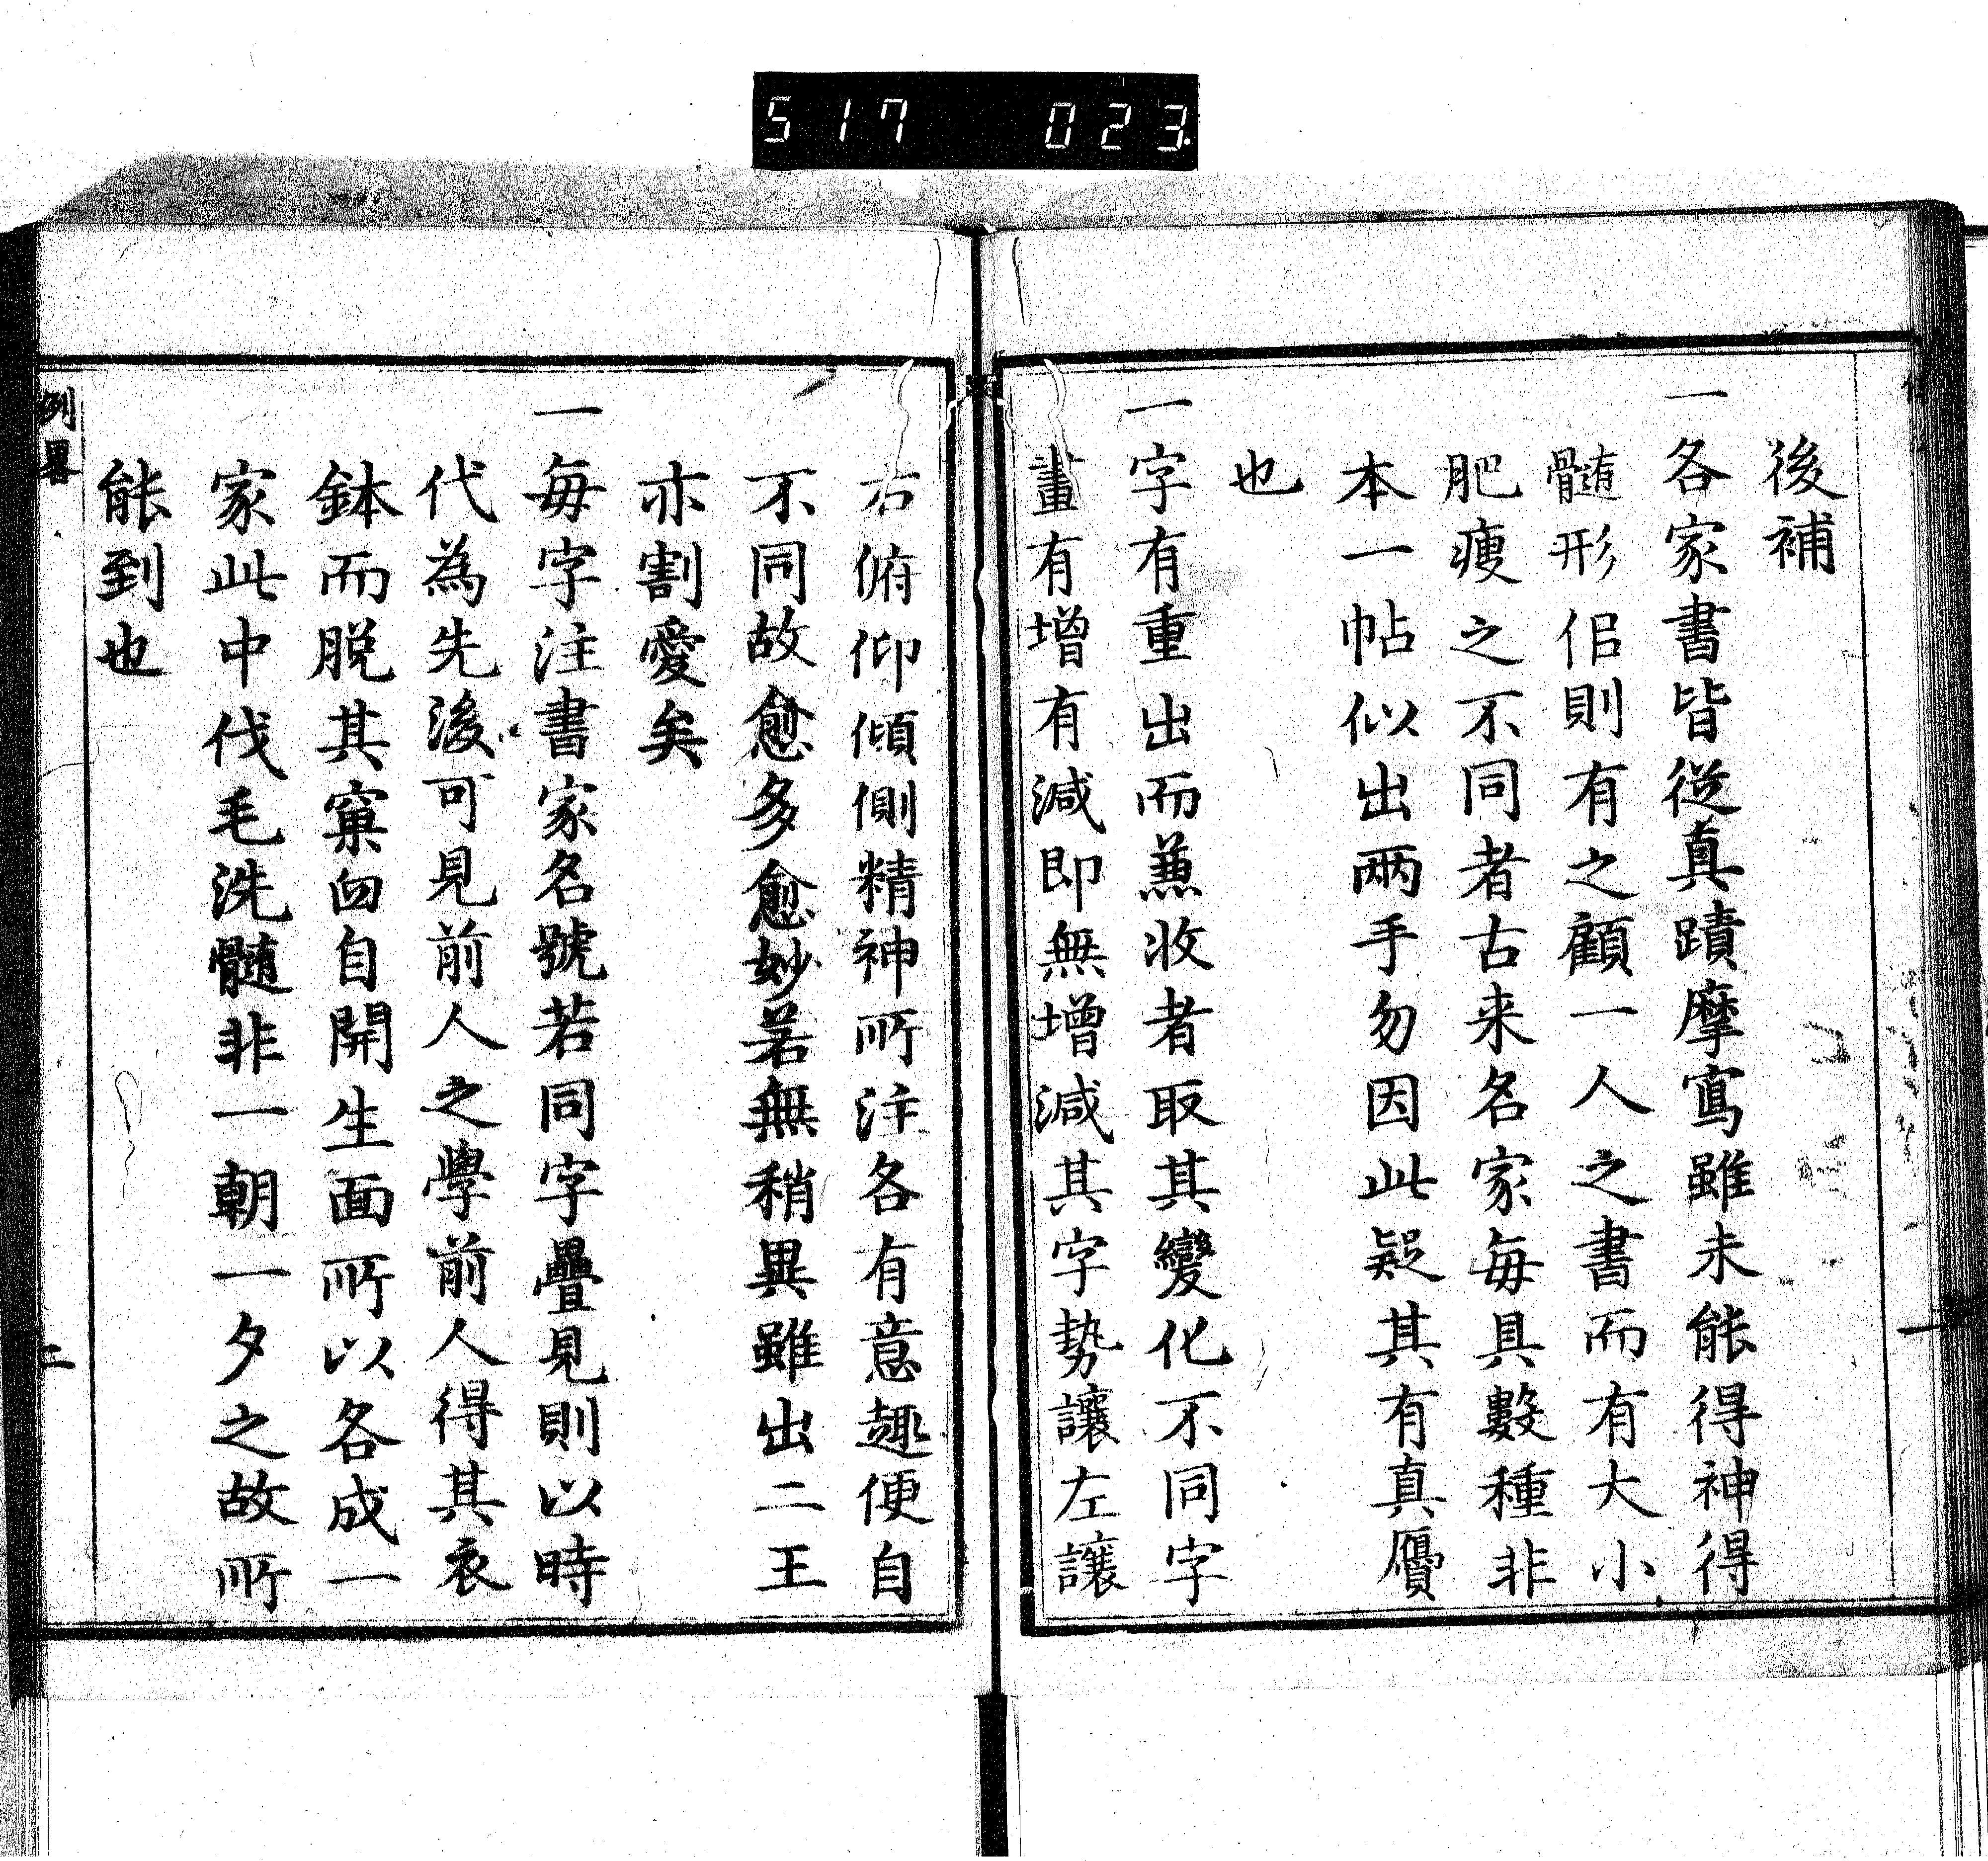 517 023
後補
一各家書皆從真蹟摩寫雖未能得神得
髓形佀則有之顧一人之書而有大小
肥瘦之不同者古来名家每具數種非
本一帖似出兩手勿因此疑其有真贋
也
一字有重出而兼收者取其變化不同字
畫有增有減即無增減其字勢讓左讓
右俯仰傾側精神所注各有意趣便自
不同故愈多愈妙若無稍異雖出二王
亦割愛矣
一每字注書家名號若同字疊見則以時
代為先後可見前人之學前人得其衣
鉢而脫其窠臼自開生面所以各成一
家此中伐毛洗髓非一朝一夕之故所
能到也
例畧
二